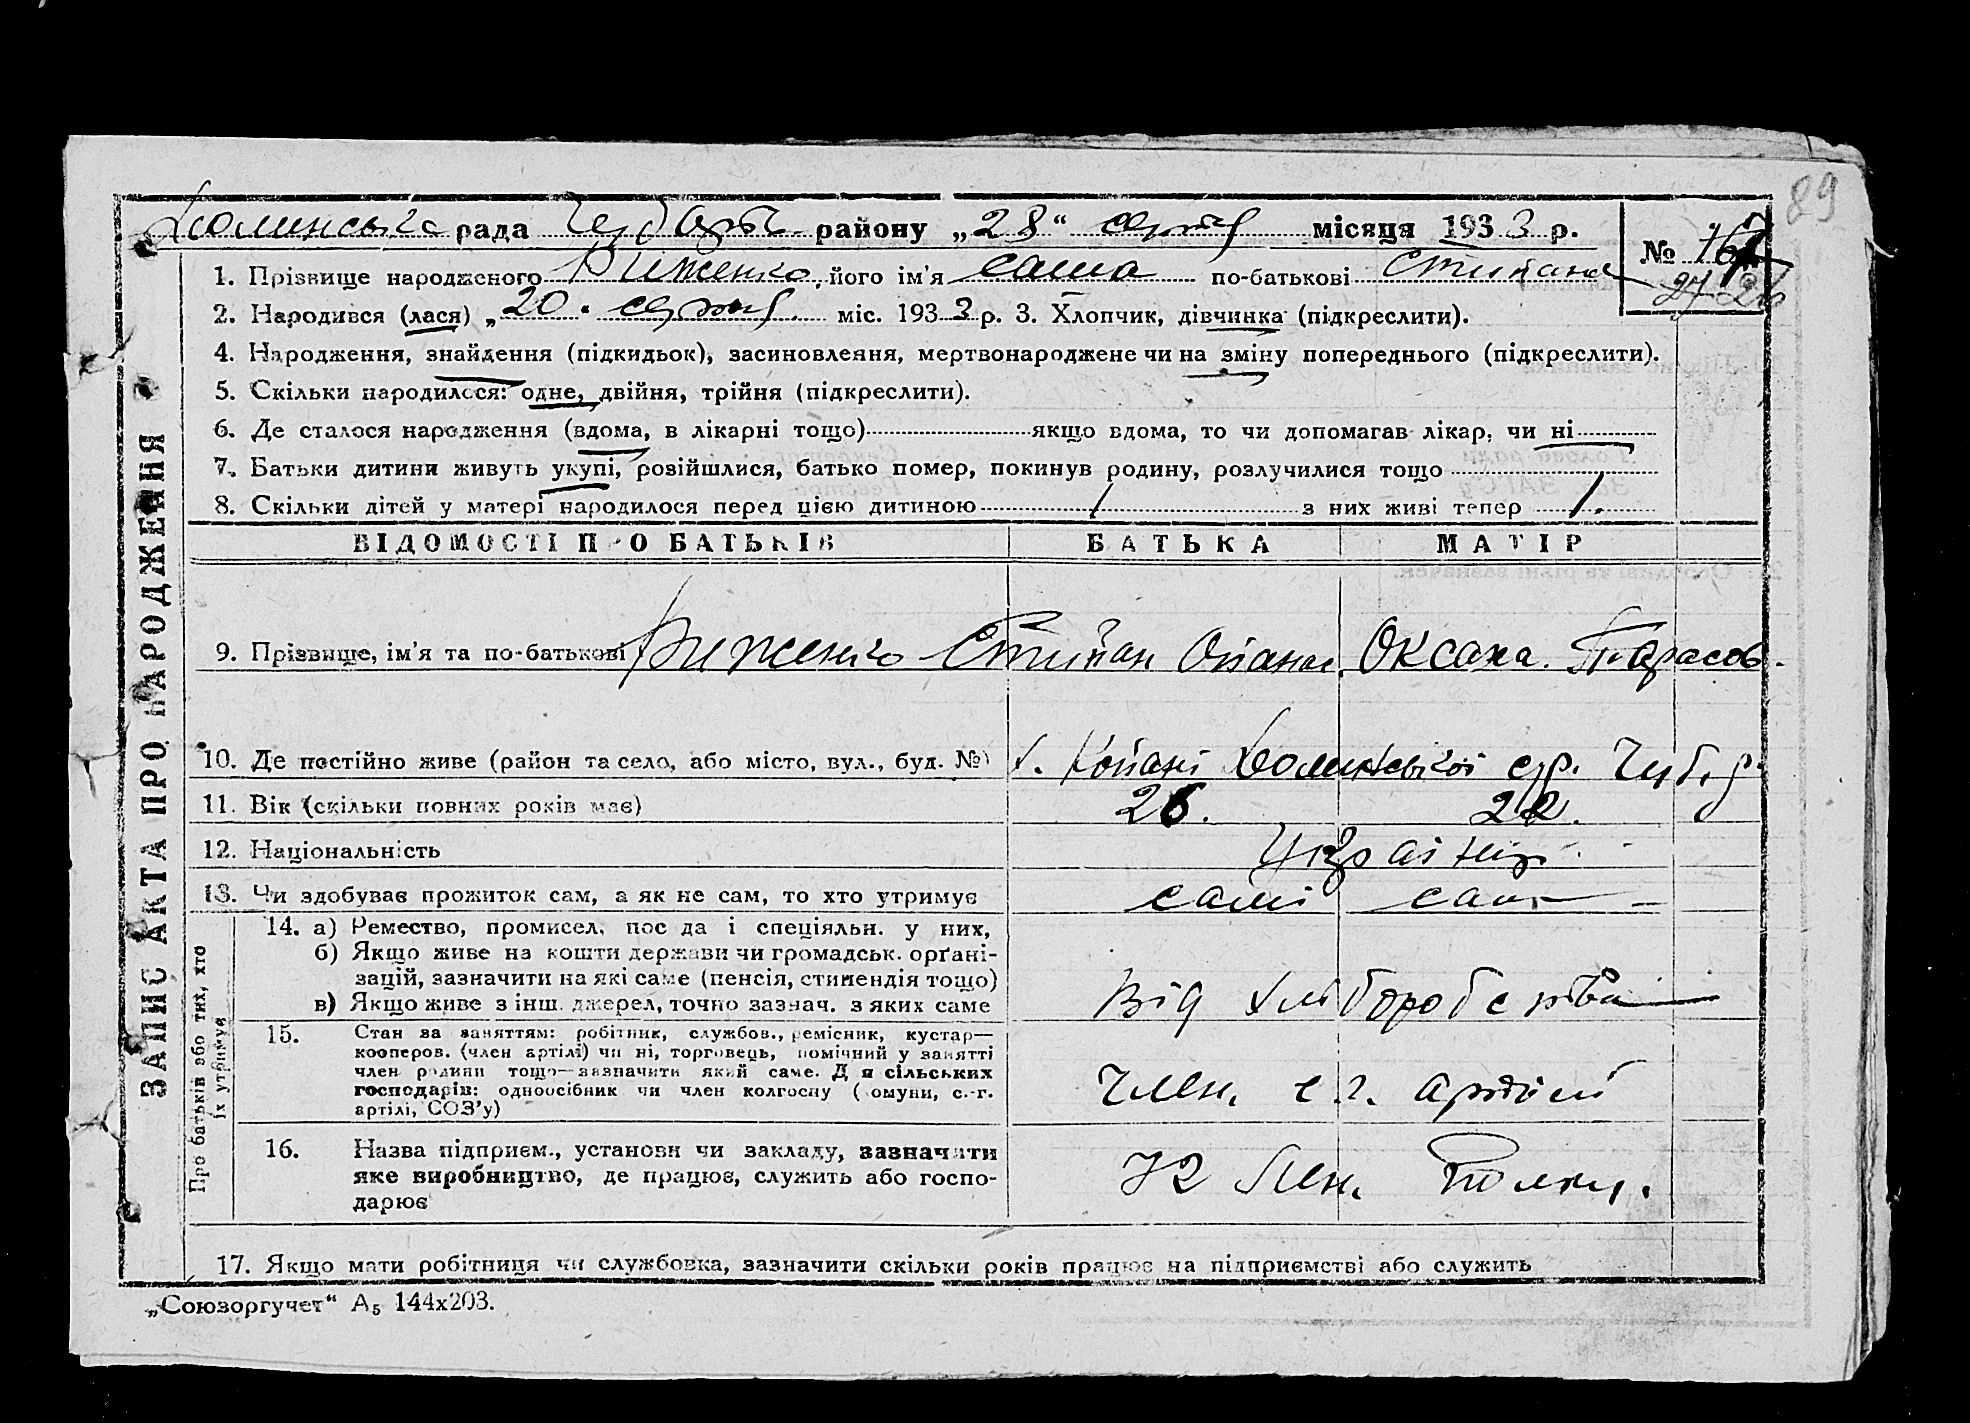 89
рада району „28“ серпня місяця 1933 р.
№
1. Прізвище народженого Риженко, його ім'я Саша по-батькові Степанов
27 26
2. Народився (лася) „20" серпня міс. 1933 р. 3. Хлопчик, дівчинка (підкреслити).
4. Народження, знайдення (підкидьок), засиновлення, мертвонароджене чи на зміну попереднього (підкреслити).
5. Скільки народилося: одне, двійня, трійня (підкреслити).
6. Де сталося народження (вдома, в лікарні тощо) якщо вдома, то чи допомагав лікар, чи ні
7. Батьки дитини живуть укупі, розійшлися, батько помер, покинув родину, розлучилися тощо
8. Скільки дітей у матері народилося перед цією дитиною 1 з них живі тепер 1.
ЗАПИС АКТА ПРО НАРОДЖЕННЯ
ВІДОМОСТІ ПРО БАТЬКІВ БАТЬКА МАТІР
9. Прізвище, ім'я та по-батькові Риженко Степан Опанас. Оксана Тарасов.
10. Де постійно живе (район та село, або місто, вул., буд. №) х. Копані сдр. Чуб. р.
11. Вік (скільки повних років має) 26. 22.
12. Національність україн.
13. Чи здобуває прожиток сам, а як не сам, то хто утримує самі сам
Про батьків або тих, хто їх утримує
14. а) Ремество, промисел, посада і спеціяльн. у них,
б) Якщо живе на кошти держави чи громадськ. орґані-
зацій, зазначити на які саме (пенсія, стипендія тощо)
в) Якщо живе з інш. джерел, точно зазнач. з яких саме
Від хліборобства
15. Стан за заняттям: робітник, службов., ремісник, кустар—
кооперов. (член артілі) чи ні, торговець, помічний у занятті
член родини тощо—зазначити який саме. Для сільських
господарів: одноосібник чи член колгоспу (комуни, с.-г.
артілі, СОЗ'у)
Член. с.г. артілі
16. Назва підприєм., установи чи закладу, зазначити
яке виробництво, де працює, служить або госпо-
дарює
Лен.
17. Якщо мати робітниця чи службовка, зазначити скільки років працює на підприємстві або служить
„Союзоргучет“ А₅ 144х203.